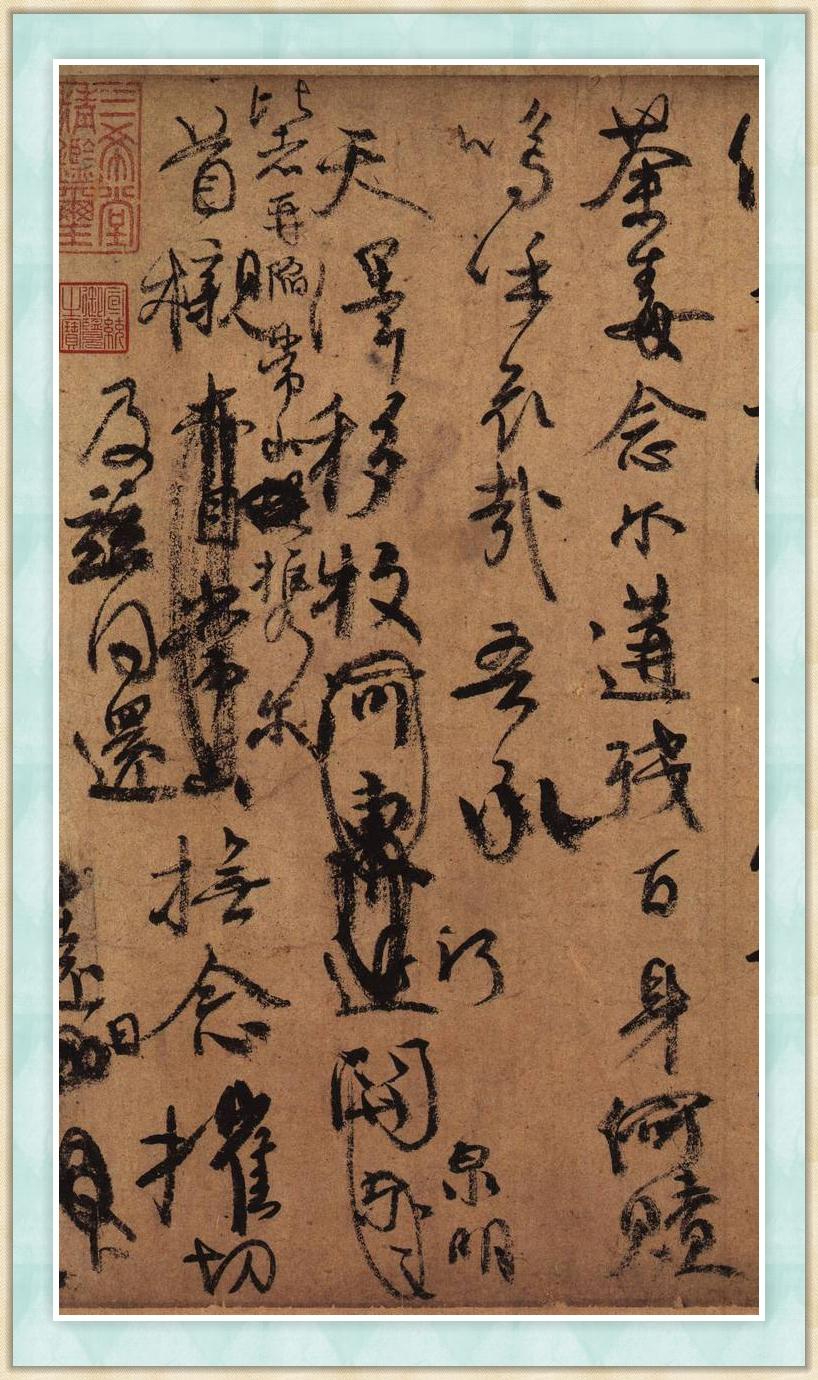 荼毒念尔遘殘百身何贖
嗚呼哀哉吾承
天澤移牧河關泉明
比者再陷常山携尔
首櫬常山撫念摧切
及茲同還
遠日
三希堂精鑑璽
宣統御覽之寶